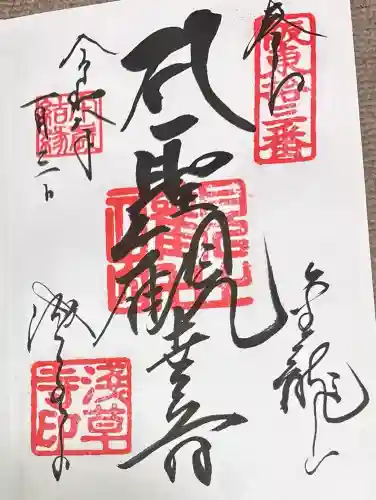 奉拝
坂東拾三番
聖観世音
金龍山
令和二年
一月三日
結縁
浅草寺
浅草寺印